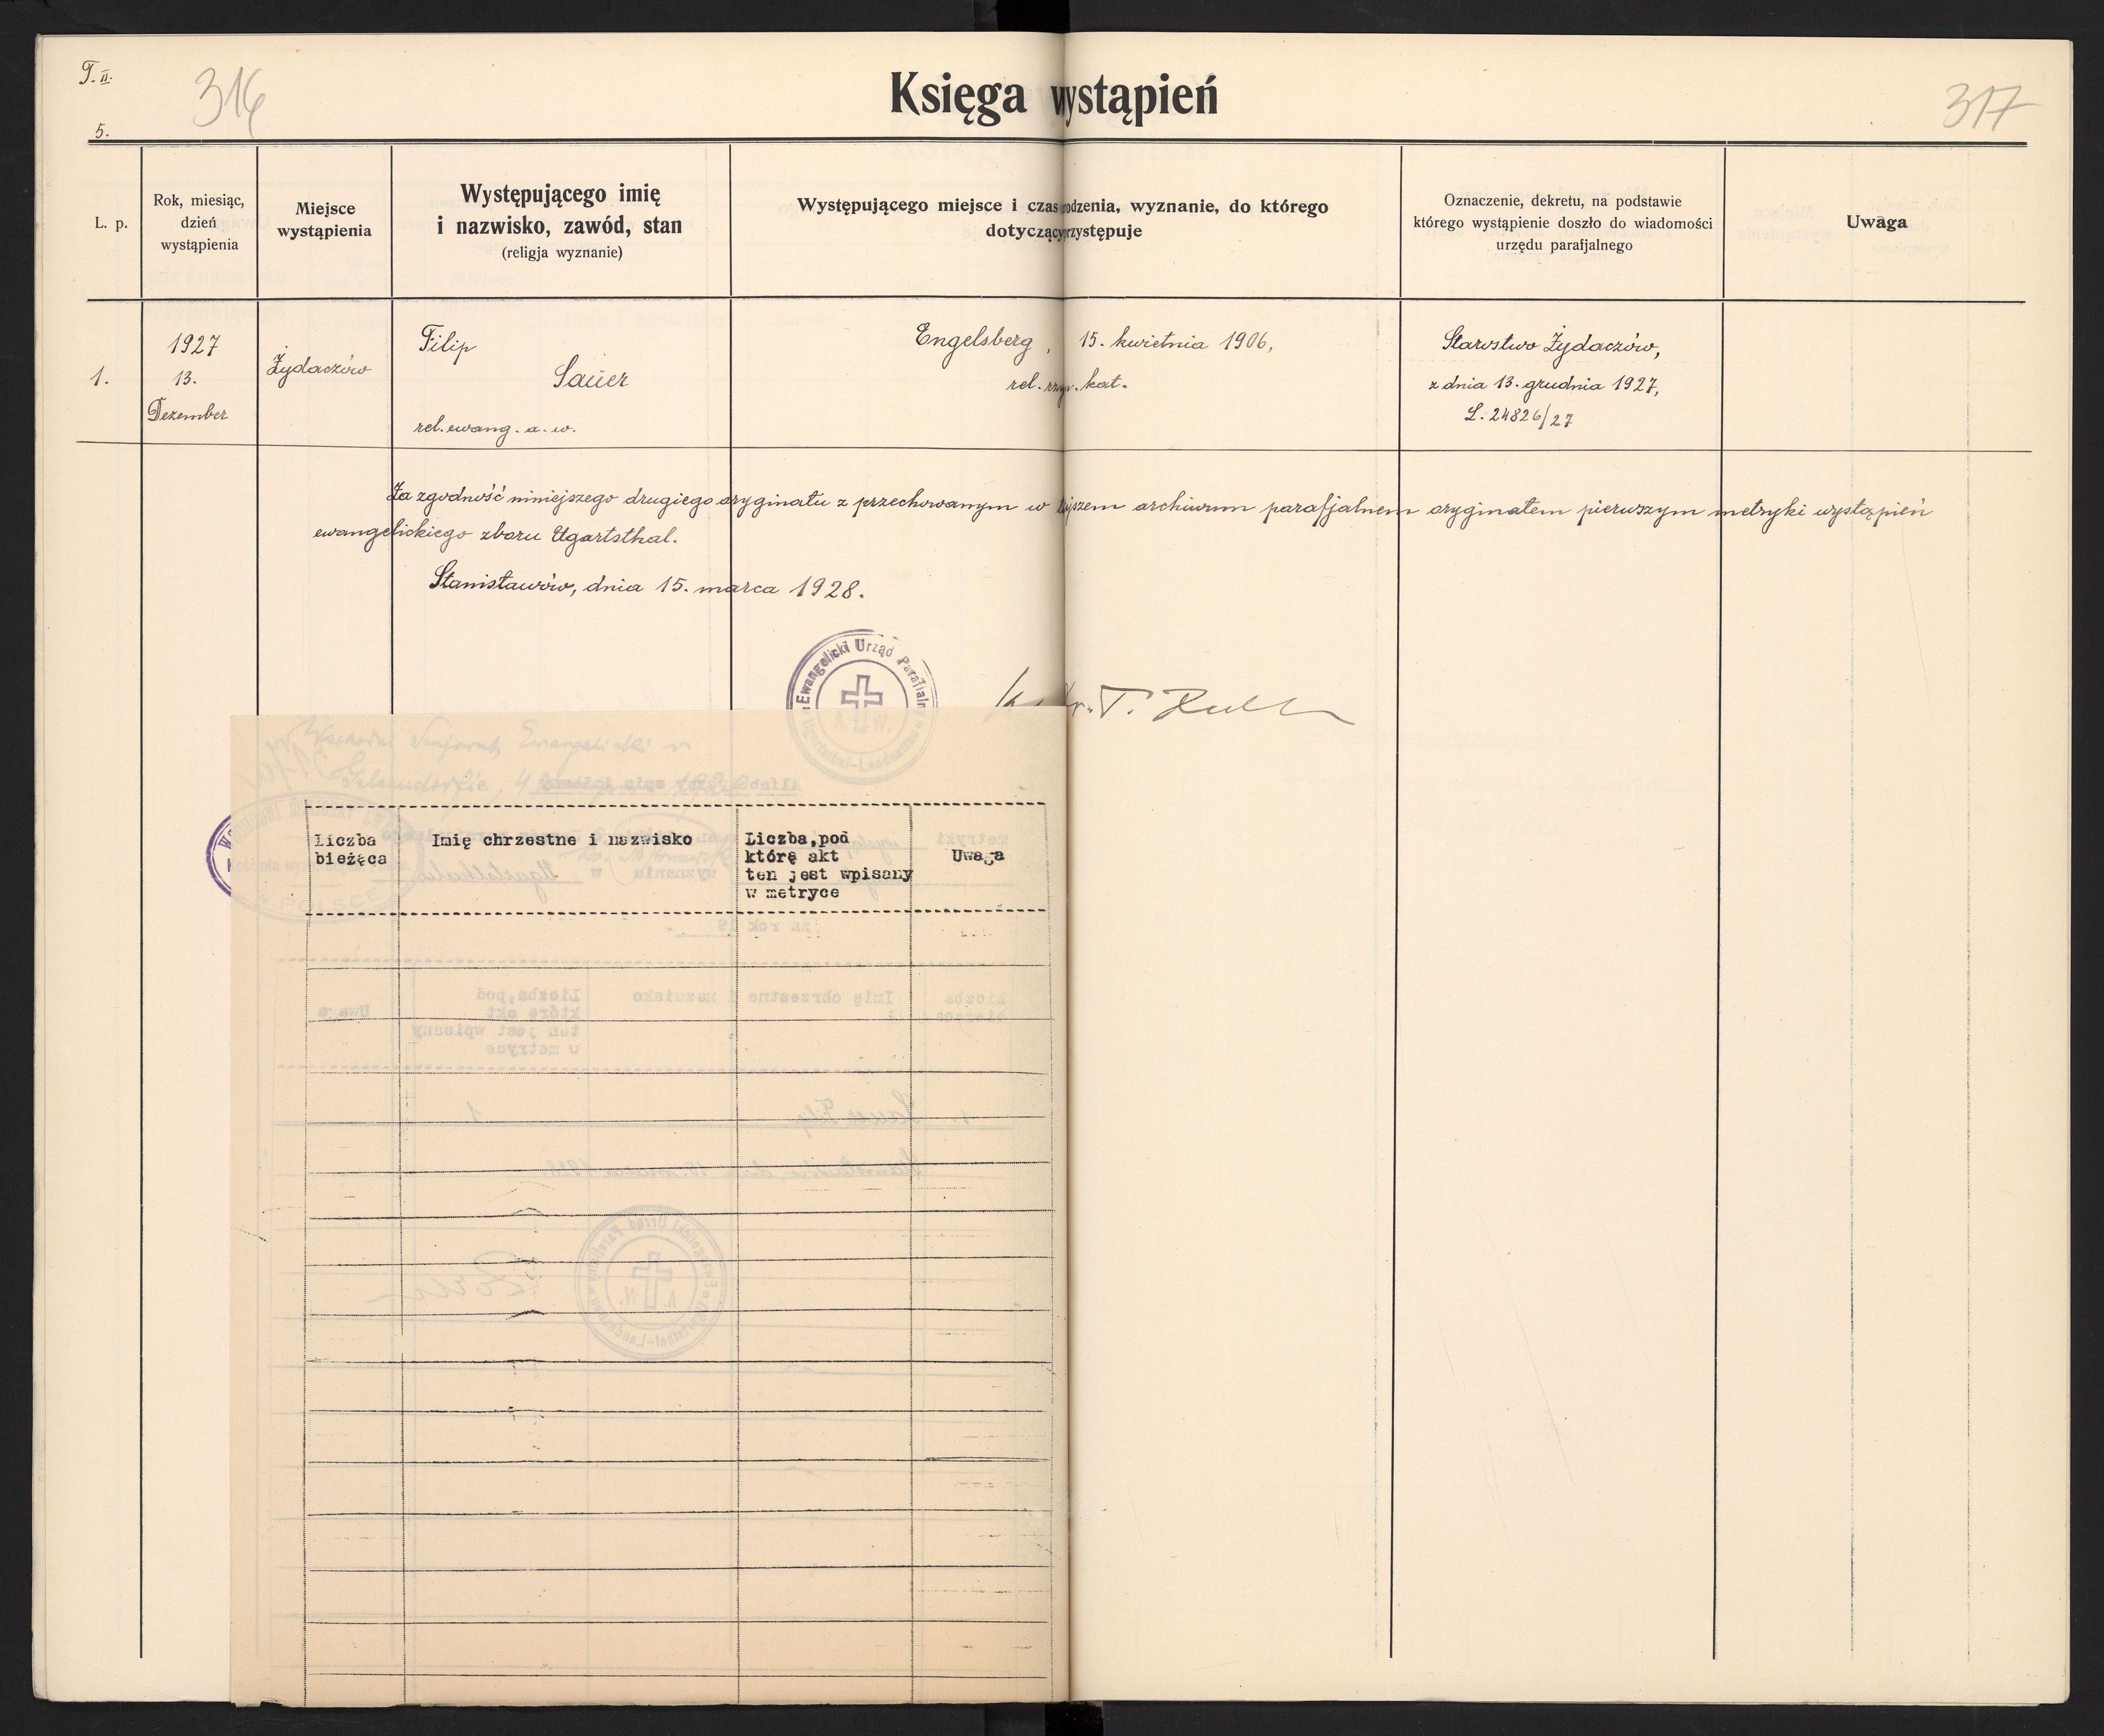 T. II.
316
Księga wystąpień
317
5.
L. p.
Rok, miesiąc,
dzień
wystąpienia
Miejsce
wystąpienia
Występującego imię
i nazwisko, zawód, stan
(religja wyznanie)
Występującego miejsce i czas rodzenia, wyznanie, do którego
dotyczący rzystępuje
Oznaczenie, dekretu, na podstawie
którego wystąpienie doszło do wiadomości
urzędu parafjalnego
Uwaga
1.
1927
13.
Dezember
Żydaczów
Filip
Sauer
rel. ewang. a. w.
Engelsberg, 15. kwietnia 1906,
rel. rzym. kat.
Starostwo Żydaczów,
z dnia 13. grudnia 1927,
L. 24826/27
Za zgodność niniejszego drugiego oryginału z przechowanym w tejszem archiwum parafjalnem oryginałem pierwszym metryki wystąpień
ewangelickiego zboru Ugartsthal.
Stanisławów, dnia 15. marca 1928.
Ewangelicki Urząd Parafialn
A. W.
Ugartsthal-Landestreu
Liczba
bieżąca
Imię chrzestne i nazwisko
Liczba, pod
którę akt
ten jest wpisany
w metryce
Uwaga